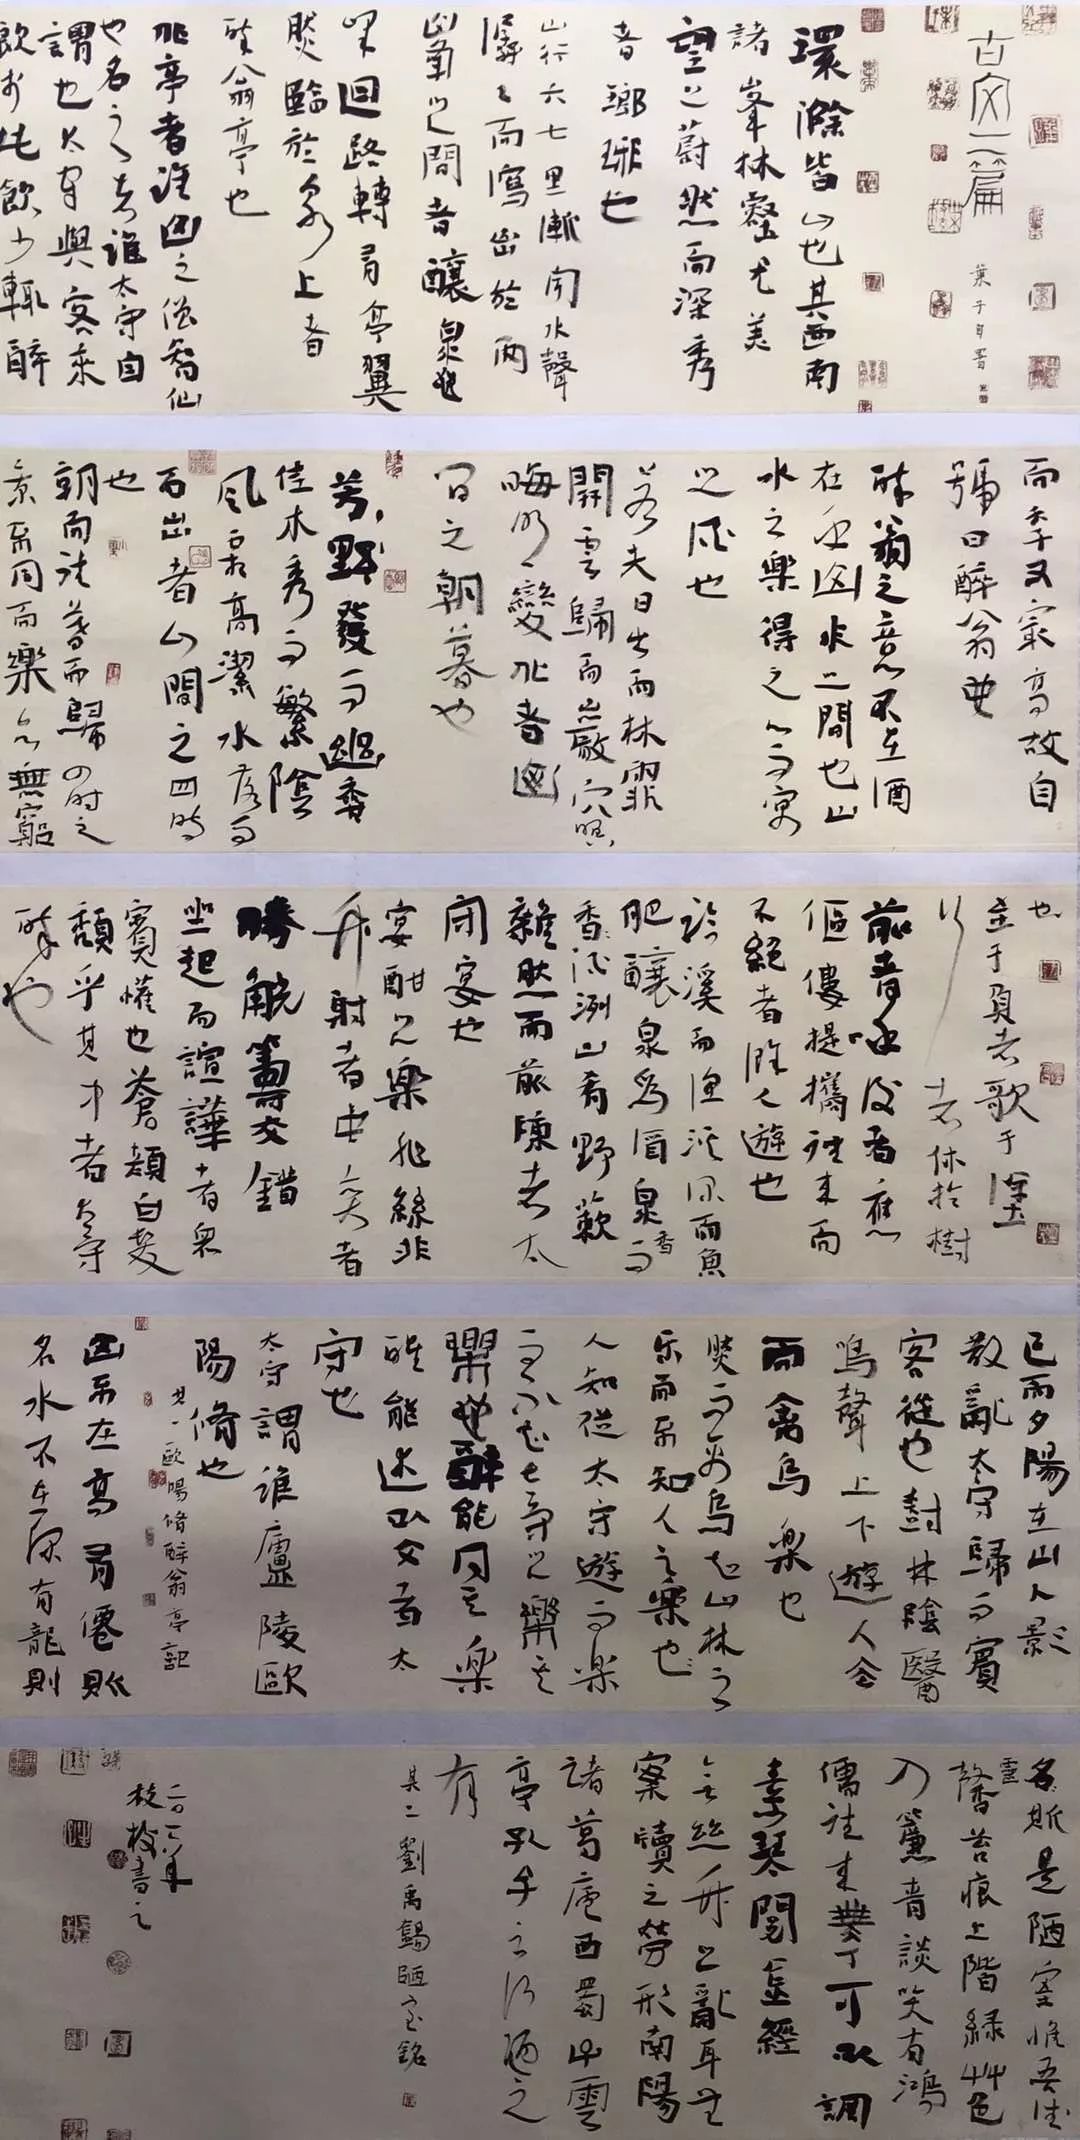 古文二篇
葉子自書
環滁皆山也其西南
諸峯林壑尤美
望之蔚然而深秀
者瑯琊也
山行六七里漸聞水聲
潺々而瀉出於兩
峯之間者釀泉也
峯回路轉有亭翼
然臨於泉上者
醉翁亭也
作亭者誰山之僧智仙
也名之者誰太守自
謂也太守與客來
飲於此飲少輒醉
而年又最高故自
號曰醉翁也
醉翁之意不在酒
在乎山水之間也山
水之樂得之心而寓
之酒也
若夫日出而林霏
開雲歸而巖穴暝
晦明變化者山
間之朝暮也
芳野發而幽香
佳木秀而繁陰
風霜高潔水落而
石出者山間之四時
也
朝而往暮而歸四時之
景不同而樂亦無窮
也
至于負者歌于塗
行者休於樹
前者呼後者應
傴僂提攜往來而
不絕者滁人遊也
臨溪而漁溪深而魚
肥釀泉為酒泉香而
香酒洌山肴野蔌
雜然而前陳者太
守宴也
宴酣之樂非絲非
竹射者中弈者
勝觥籌交錯
坐起而諠譁者眾
賓懽也蒼顏白髮
頹乎其中者太守
醉也
已而夕陽在山人影
散亂太守歸而賓
客從也樹林陰翳
鳴聲上下遊人去
而禽鳥樂也
然而禽鳥知山林之
樂而不知人之樂也
人知從太守遊而樂
而不知太守之樂其
樂也醉能同其樂
醒能述以文者太
守也
太守謂誰廬陵歐
陽脩也
其一歐陽脩醉翁亭記
山不在高有僊則
名水不在深有龍則
靈
名斯是陋室惟吾德
馨苔痕上階綠艸色
入簾青談笑有鴻
儒往來無丁可以調
素琴閱金經
無絲竹之亂耳無
案牘之勞形南陽
諸葛廬西蜀子雲
亭孔子云何陋之
有
其二劉禹錫陋室銘